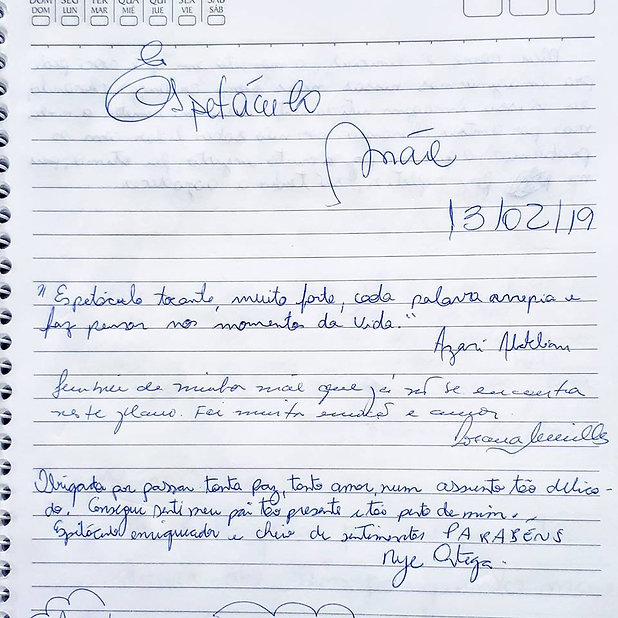 DOM SEG TER QUA QUI SEX SAB
DOM LUN MAR MIÉ JUE VIE SÁB
Espetáculo
mãe
13/02/19
"Espetáculo tocante, muito forte, cada palavra arrepia e
faz pensar nos momentos da vida."
Azani
Lembrei de minha mãe que já não se encontra
neste plano. Foi muita emoção e amor.
Obrigada por passar tanta paz, tanto amor, num assunto tão delica-
do. Consegui senti meu pai tão presente e tão perto de mim.
Espetáculo enriquecedor e cheio de sentimentos PARABÉNS
Nye Ortega.